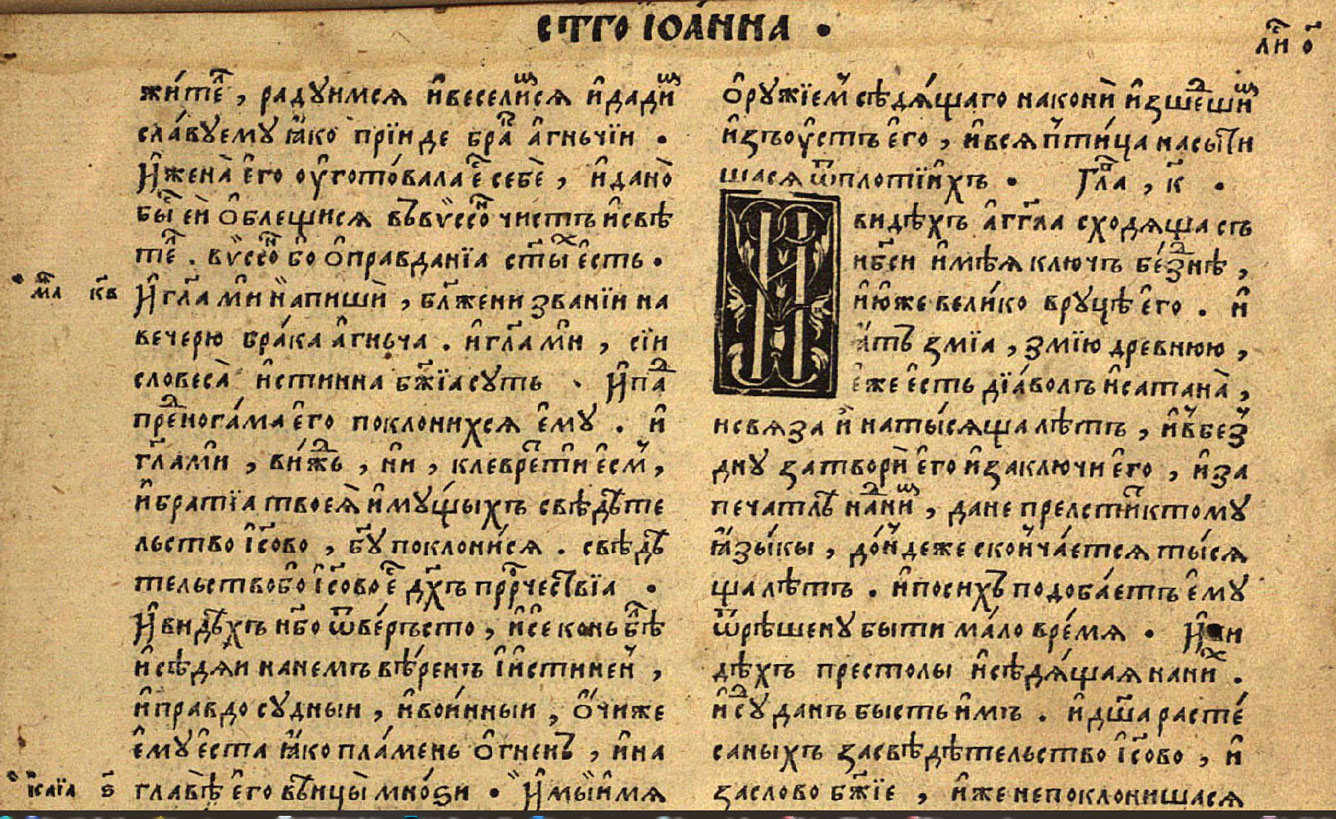 ст҃го їоа́нна •
л҃и о҃
жи́теⷧ҇ , радуимсѧ и҆весели́сѧ и҆дадиⷨ҇
сла́вуему ꙗ҆́ко прїиде браⷦ҇ а҆́гньчїи •
И҆жена̀ е҆го ѹ҆гото́вала еⷭ҇ себѐ , и҆дано̀
быⷭ҇ еи о҆блещисѧ въвѵссоⷩ҇ чистъ и҆свѣ
теⷧ҇ . вѵссоⷩ҇ бо о҆правданїѧ ст҃ыⷯ е҆сть •
м҃а к҃в
И҆гл҃а ми напишѝ , бл҃жени званїи на
вечерю бра́ка а҆́гньча . и҆гл҃а мѝ , сїи
словеса̀ и҆стинна бж҃їѧ суть • И҆паⷣ
преⷣнога́ма е҆го поклонихсѧ е҆му . и҆
гл҃ами , ви́жⷣь , ни , клеврет ти е҆смь ,
и҆братїѧ твоеѧ̀ и҆мущыхъ свѣдѣте
льство і҆с҃ово , бг҃у поклони́сѧ . свѣдѣ
тельствобо і҆с҃овоеⷭ҇ дх҃ъ прⷪ҇рчествїѧ •
И҆видѣхъ нб҃о ѿве́рьсто , и҆се конь бѣⷧ҇
и҆сѣдѧ́и нанемъ вѣ́ренъ і҆и҆стиненъ ,
и҆правдосудныи , и҆вои́нныи , о҆́чиже
е҆му е҆ста ꙗ҆́ко пла́мень о҆́гненъ , и҆на
и҆саїа ѕ҃
главѣ̀ е҆го вѣнцы̀ мно́ѕи • И҆мы̀ и҆мѧ
о҆ружїемъ сѣдѧ́щаго наконѝ и҆зшеⷣшиⷨ҇
и҆зъѹ҆стъ е҆го , и҆всѧ пти́ца насыти
шасѧ ѿплотїи҆хъ • Гл҃а , к҃ •
И видѣхъ а҆гг҃ла сходѧща съ
нб҃си и҆мѣ́ѧ ключъ бе́зⷣнѣ ,
и҆ю҆же вели́ко вруцѣ̀ е҆го . и҆
ꙗ҆́тъ змїа , змїю древнюю ,
е҆же е҆сть дїа́волъ и҆сатана̀ ,
исвѧза и҆̀ натысѧща лѣтъ , и҆въбез
дну затворѝ е҆го и҆заключи е҆го , и҆за
печатлѣ̀ наⷣниⷨ҇ , дане прелститктому
ꙗ҆зы́кы , до́ндеже сконча́етсѧ ты́сѧ
ща лѣтъ . и҆посихъ подоба́етъ е҆му
ѿрѣшену быти ма́ло вре́мѧ • И҆ви
дѣхъ престолы и҆сѣдѧ́щаѧ нани́ⷯ .
и҆суⷣ данъ бысть и҆мъ . и҆дш҃а расте́
саныхъ засвѣдѣтельство і҆с҃ово , и҆
заслово бж҃їе , и҆же непоклонишасѧ